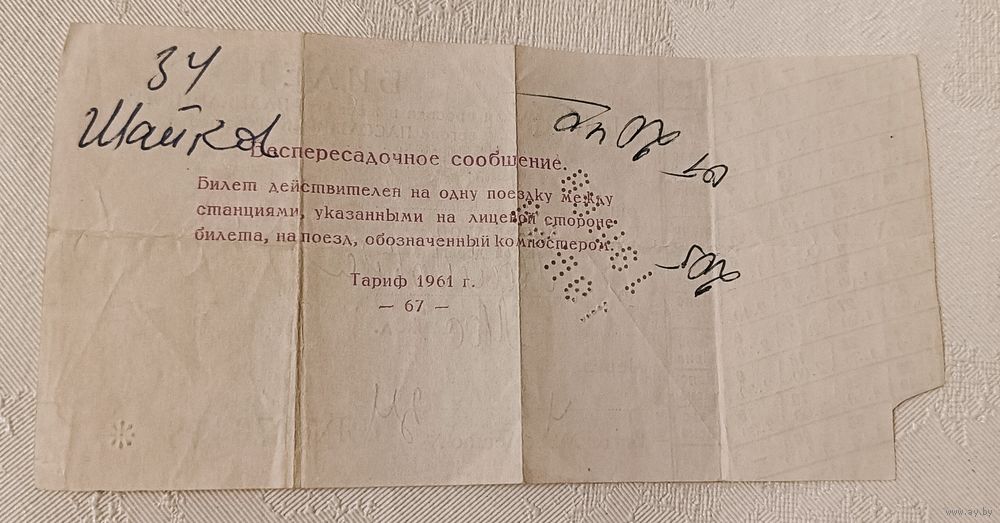 34
Шайков
Беспересадочное сообщение.
Билет действителен на одну поездку между
станциями, указанными на лицевой стороне
билета, на поезд, обозначенный компостером.
Тариф 1961 г.
— 67 —
www.ay.by